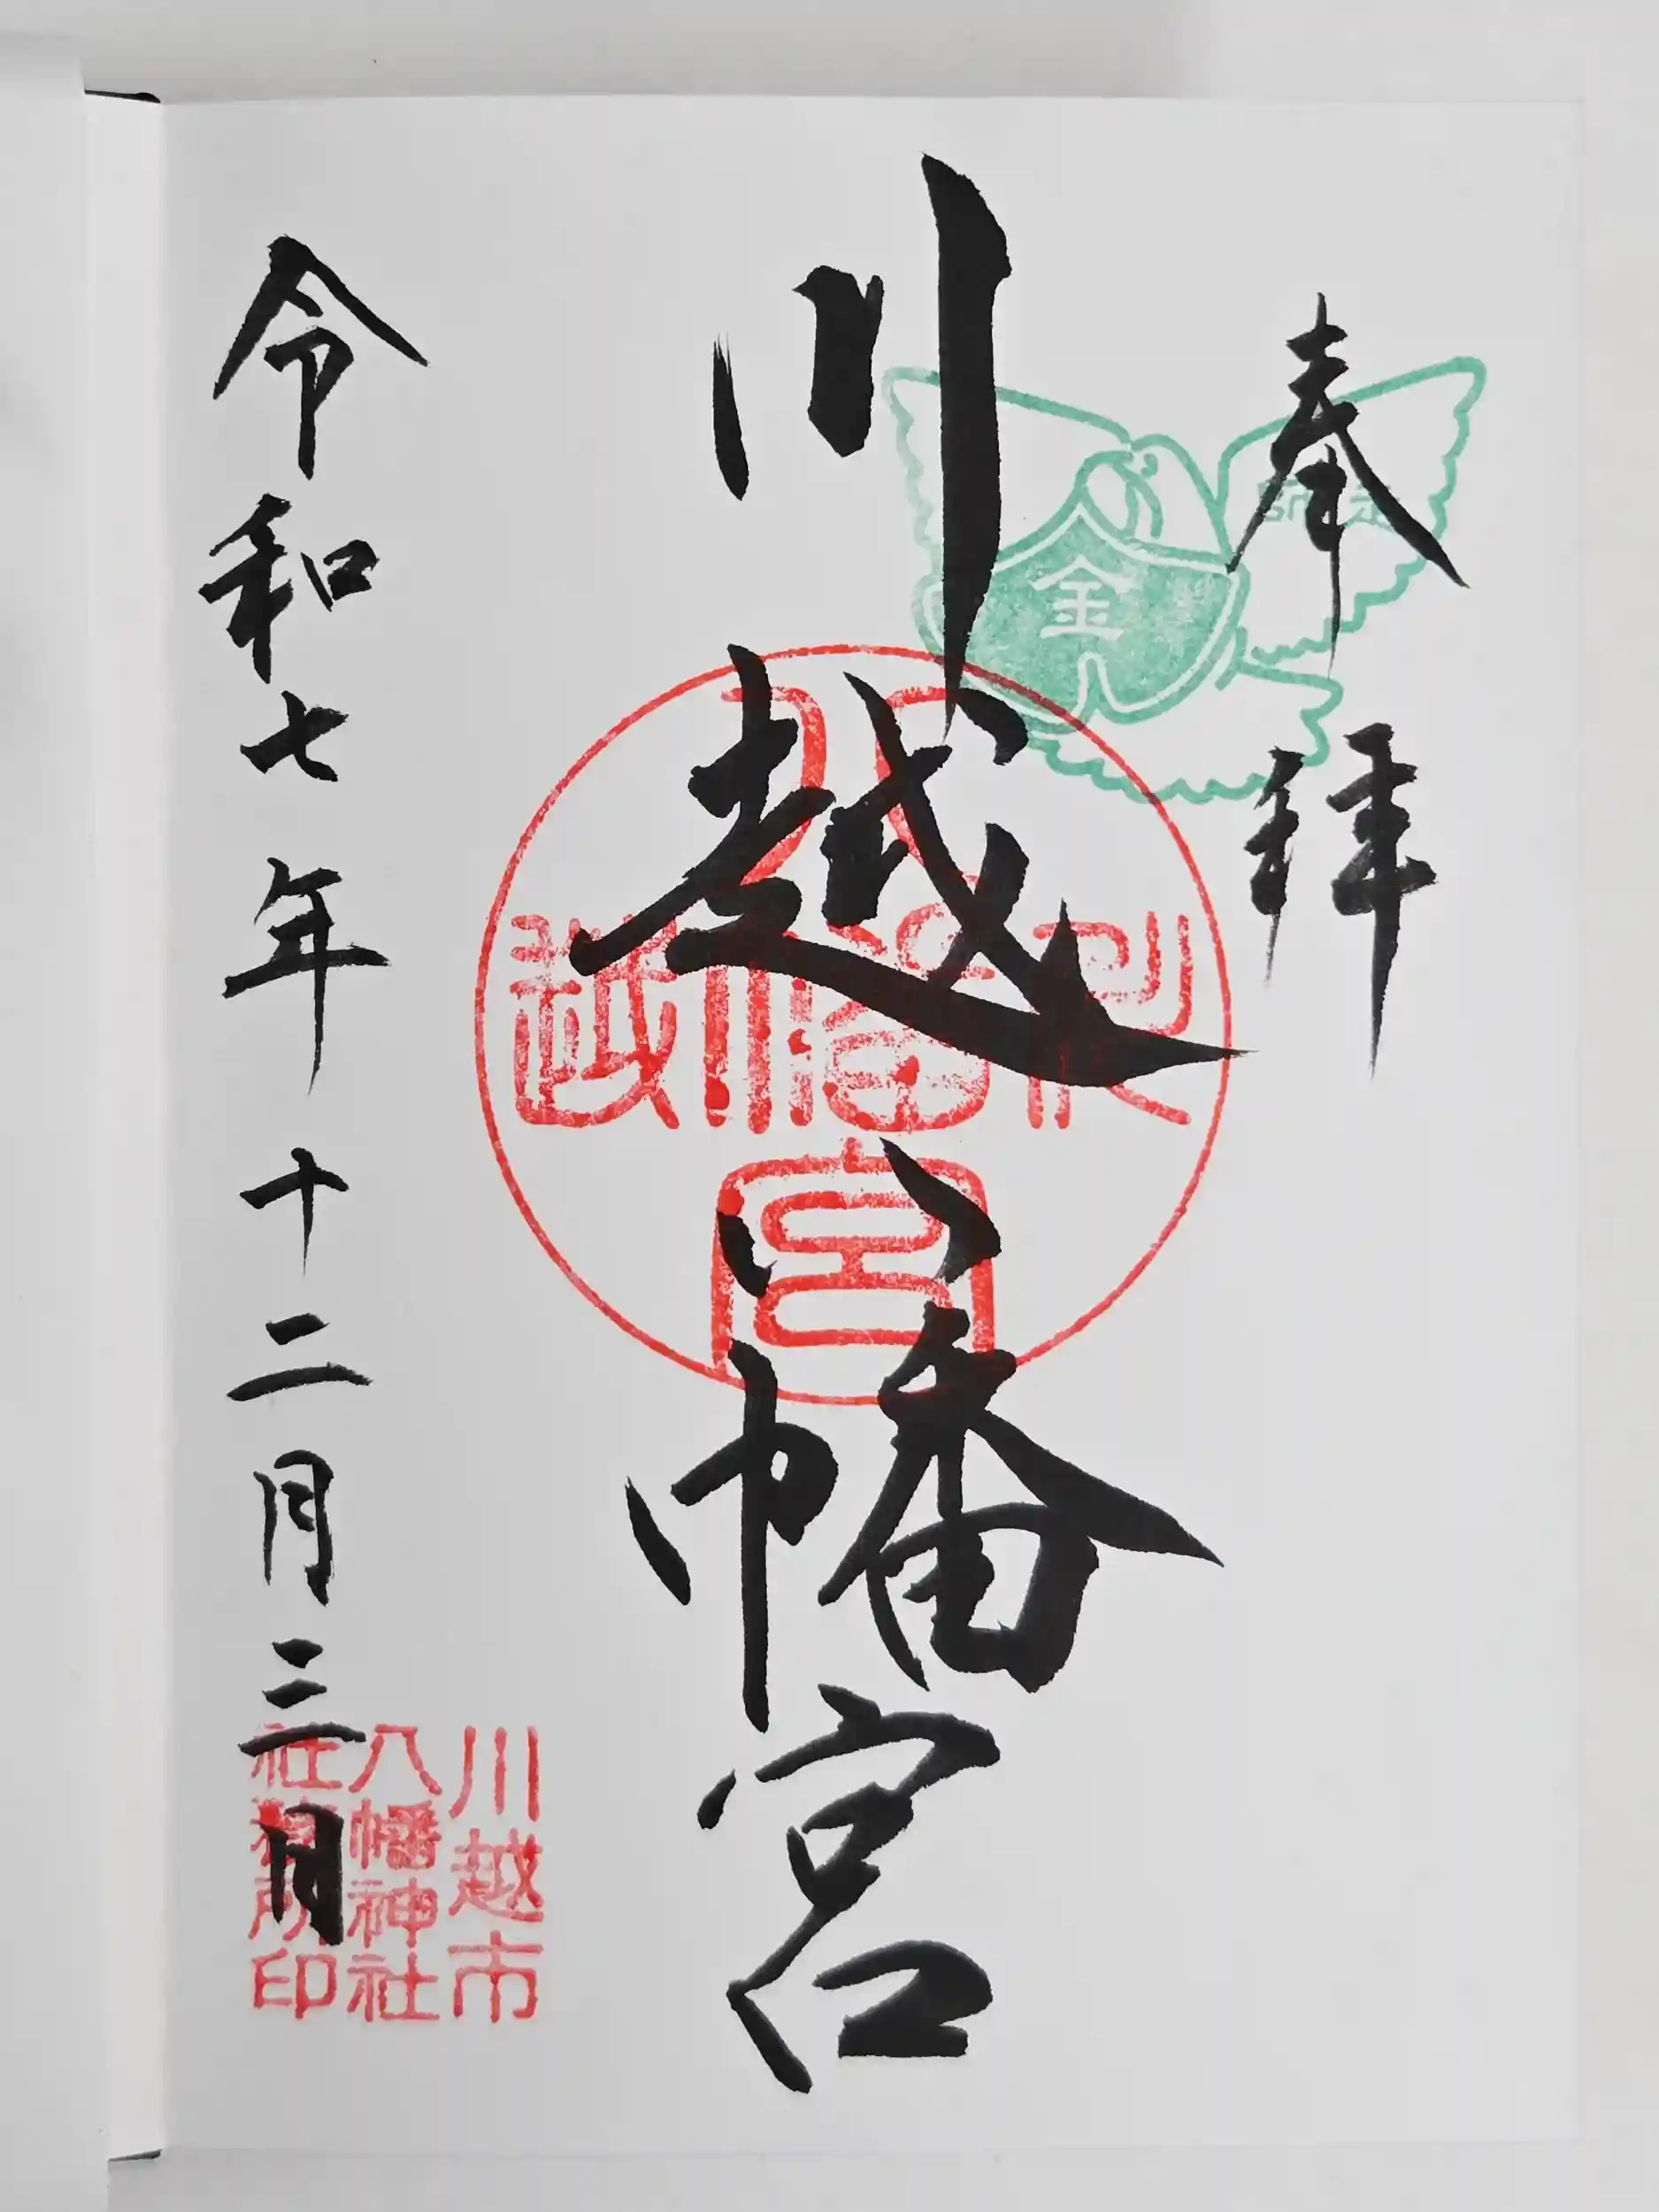 奉拝
金
川越八幡宮
川越
宮
令和七年十二月三日
川越市
八幡神社
社務所印